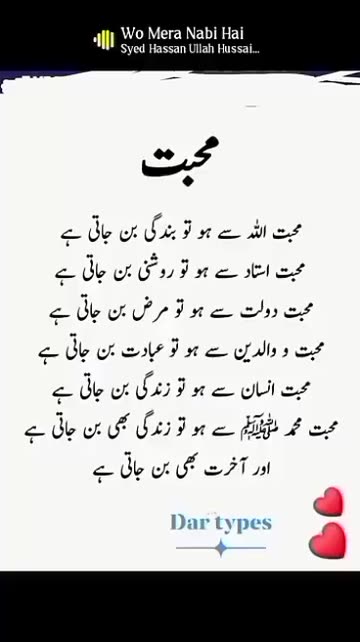 Wo Mera Nabi Hai
Syed Hassan Ullah Hussai...
محبت
محبت اللہ سے ہو تو بندگی بن جاتی ہے
محبت استاد سے ہو تو روشنی بن جاتی ہے
محبت دولت سے ہو تو مرض بن جاتی ہے
محبت و والدین سے ہو تو عبادت بن جاتی ہے
محبت انسان سے ہو تو زندگی بن جاتی ہے
محبت محمد ﷺ سے ہو تو زندگی بھی بن جاتی ہے
اور آخرت بھی بن جاتی ہے
Dar types